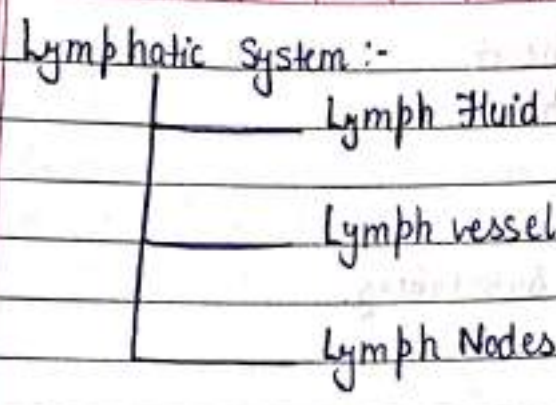 Lymphatic System :-
Lymph Fluid
Lymph vessel
Lymph Nodes